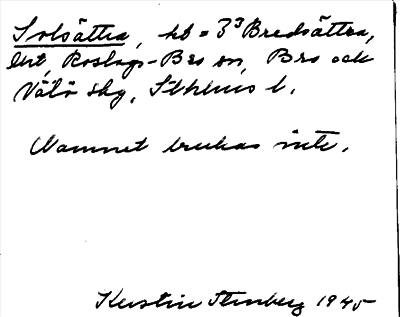 Solsättra, hd = 3³ Bredsättra,
lht, Roslags-Bro sn, Bro och
Vätö skg, Sthlms l.
Namnet brukas inte.
Kerstin Stenberg 1945